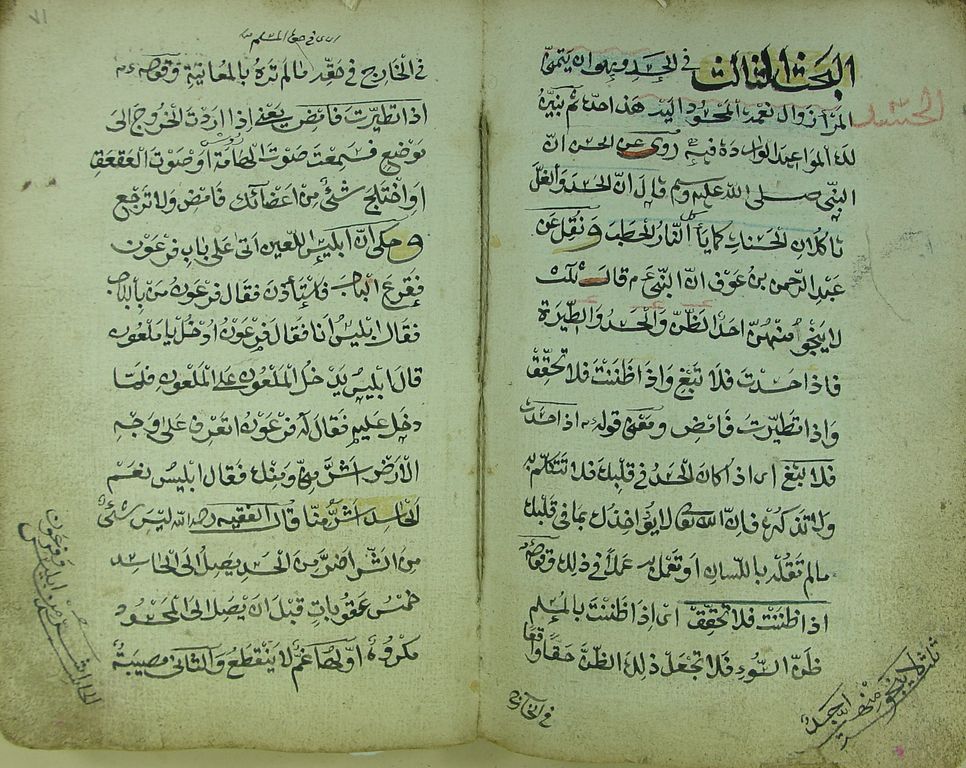 البحث الثالث في الحسد وهو ان يتمنى
الحسد
المرأ زوال نعمة المحسود اليه هذا احد ثم نبيّه
لك المواعيد الواردة فيه روى عن الحسن انّ
النبي صلى الله عليه وسلم قال انّ الحسد والغلّ
ياكلان الحسنات كما ياكل النّار الحطب ونقل عن
عبد الرحمن بن عوف انّ النبي عم قال ثلث
لا ينجو منهنّ احد الظنّ والحسد والطيرة
فاذا حسدت فلا تبغ واذا ظننت فلا تحقّق
واذا تطيّرت فامض ومعنى قوله عم اذا حسدت
فلا تبغ اى اذا كان الحسد في قلبك فلا تتكلم به
ولا تذكره فانّ الله تعالى لا يؤاخذك بما في قلبك
مالم تقله باللسان او تعمل به عملا في ذلك وقوله عم
اذا ظننت فلا تحقّق اى اذا ظننت بالمسلم
ظنّ السّوء فلا تجعل ذلك الظنّ حقا واقعا
في الخارج
ثلث لا ينجو منهنّ احد
اى في حق المسلم
في الخارج في حقه مالم تره بالمعاينة وقوله عم
اذا تطيّرت فامض يعنى اذا اردت الخروج الى
موضع فسمعت صوت الهامة او صوت العقعق
او اختلج شئ من اعضائك فامض ولا ترجع
وحكى انّ ابليس اللعين اتى على باب فرعون
فقرع الباب فاستأذن فقال فرعون من بالباب
فقال ابليس انا فقال فرعون ادخل يا ملعون
قال ابليس يدخل الملعون على الملعون فلمّا
دخل عليه فقال له فرعون اتعرف على وجه
الارض اشرّ منّى ومنك فقال ابليس نعم
الحاسد اشرّ منّا قال الفقيه رحمه الله ليس شئ
من الشّر اضرّ من الحسد يصل الى الحاسد
خمس عقوبات قبل ان يصل الى المحسود
مكروه اوليها غمّ لا ينقطع والثانى مصيبة
٧١